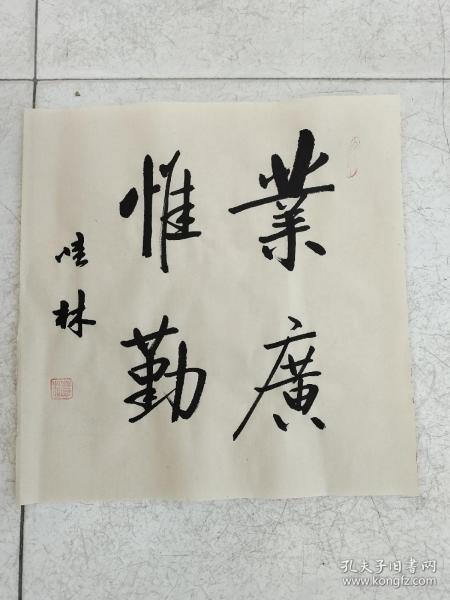 業廣
惟勤
林
孔夫子旧书网
www.kongfz.com